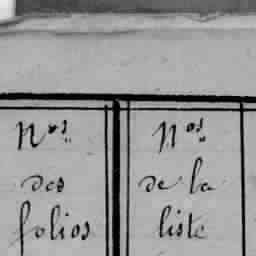 Nos
des
folios
Nos
de la
liste